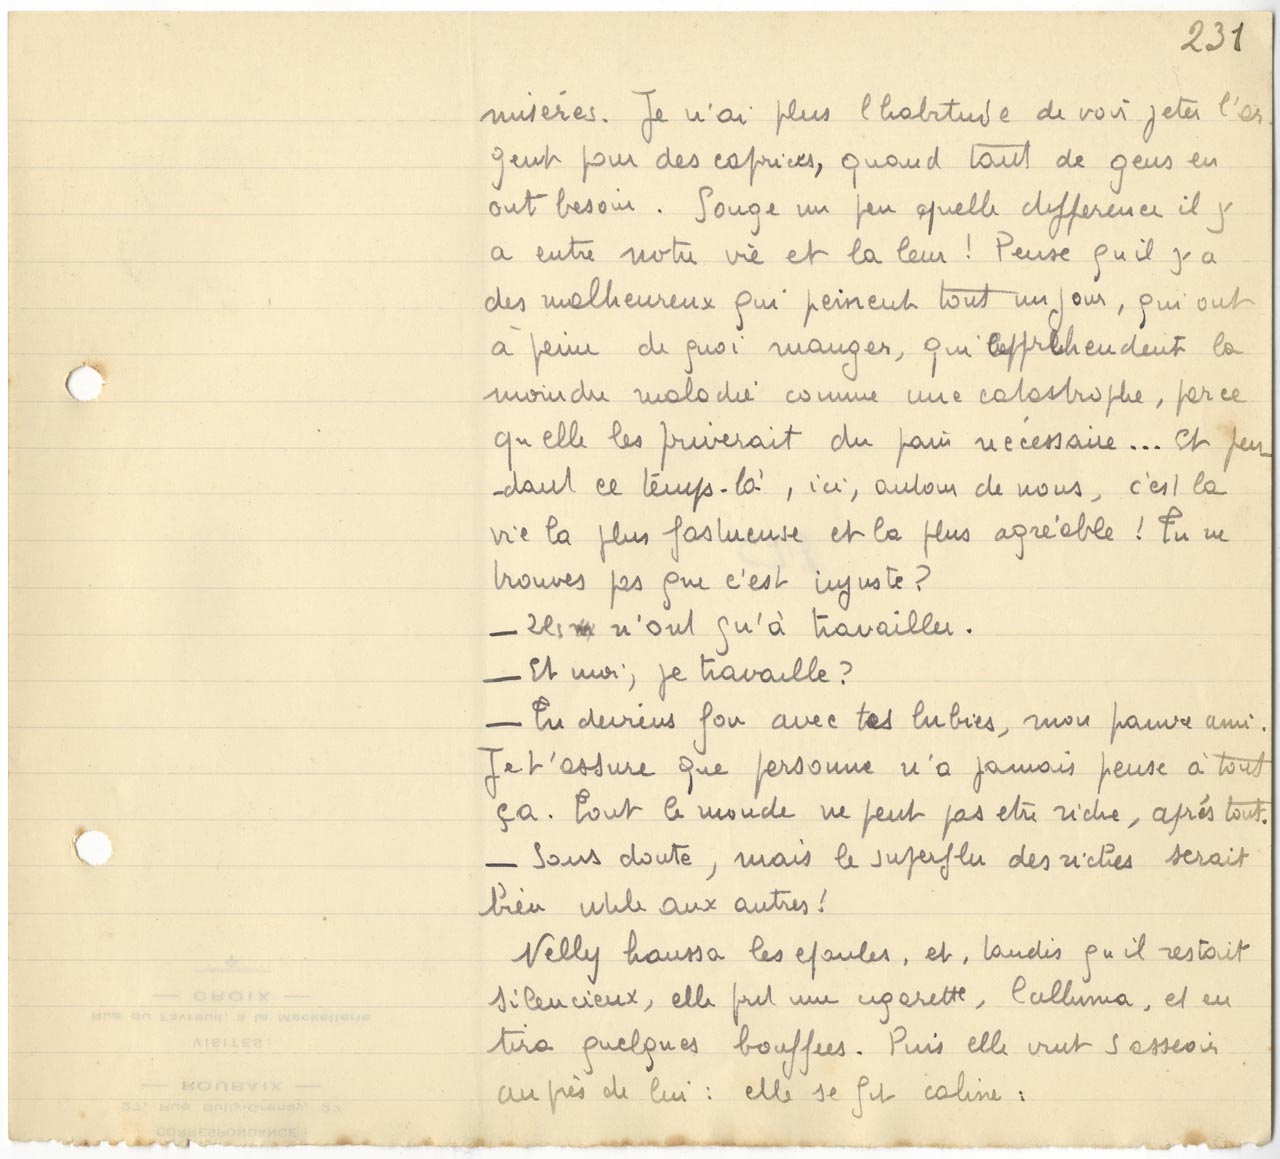 231
misères. Je n'ai plus l'habitude de voir jeter l'ar-
gent pour des caprices, quand tant de gens en
ont besoin. Songe un peu quelle différence il y
a entre notre vie et la leur ! Pense qu'il y a
des malheureux qui peinent tout un jour, qui ont
à peine de quoi manger, qui appréhendent la
moindre maladie comme une catastrophe, parce
qu'elle les priverait du pain nécessaire... Et pen-
-dant ce temps-là, ici, autour de nous, c'est la
vie la plus fastueuse et la plus agréable ! Tu ne
trouves pas que c'est injuste ?
— Ils n'ont qu'à travailler.
— Et moi, je travaille ?
— Tu deviens fou avec tes lubies, mon pauvre ami.
Je t'assure que personne n'a jamais pensé à tout
ça. Tout le monde ne peut pas etre riche, après tout.
— Sans doute, mais le superflu des riches serait
bien utile aux autres !
Nelly haussa les epaules, et, tandis qu'il restait
silencieux, elle prit une cigarette, l'alluma, et en
tira quelques bouffees. Puis elle vint s'asseoir
auprès de lui : elle se fit caline :
— CROIX —
Rue du Favreuil, à la Mackellerie
VISITES :
— ROUBAIX —
27, Rue Bully-Grenay, 27
CORRESPONDANCE :